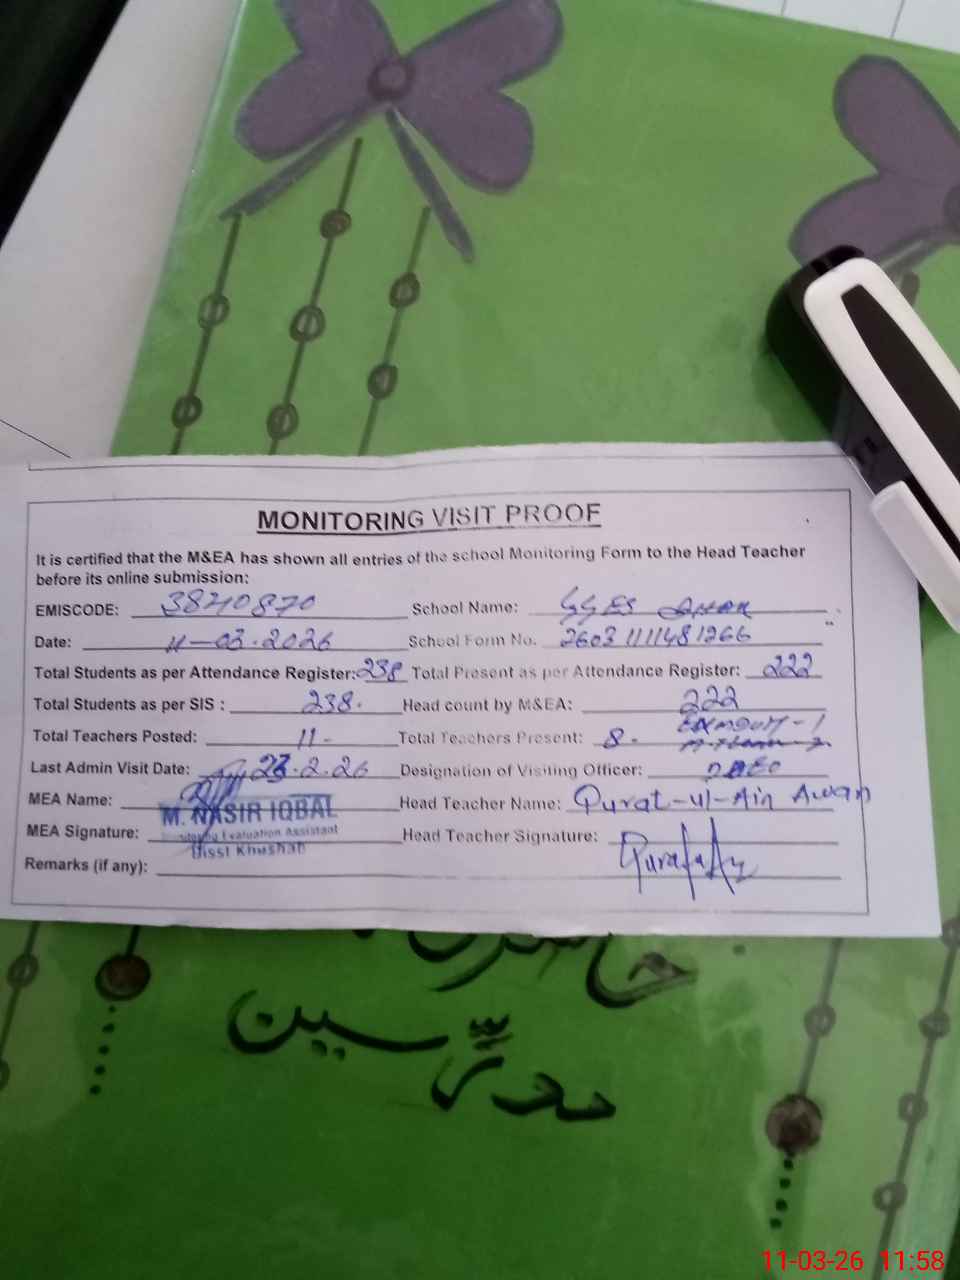 MONITORING VISIT PROOF
It is certified that the M&EA has shown all entries of the school Monitoring Form to the Head Teacher
before its online submission:
EMISCODE: 38210870 School Name: GGES
Date: 11-03-2026 School Form No. 26031111481266
Total Students as per Attendance Register: 238 Total Present as per Attendance Register: 222
Total Students as per SIS : 238. Head count by M&EA: 222
Total Teachers Posted: 11- Total Teachers Present: 8.
Last Admin Visit Date: 23.2.26 Designation of Visiting Officer:
MEA Name: M. NASIR IQBAL Head Teacher Name: Qurat-ul-Ain Awan
MEA Signature: Monitoring Evaluation Assistant Head Teacher Signature:
Disst Khushab
Remarks (if any):
مدرسین
11-03-26 11:58